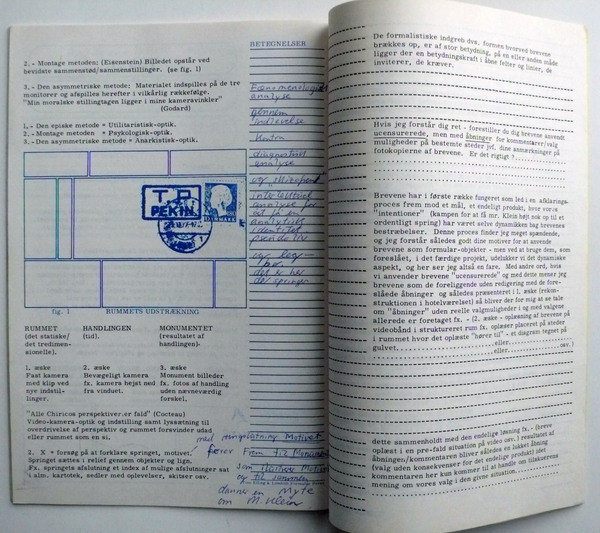 BETEGNELSER
2. - Montage metoden; (Eisenstein) Billedet opstår ved
bevidste sammenstød/sammenstillinger. (se fig. 1)
3. - Den asymmetriske metode: Materialet indspilles på de tre
monitorer og afspilles herefter i vilkårlig rækkefølge.
"Min moralske stillingtagen ligger i mine kameravinkler"
(Godard)
1. - Den episke metode = Utilitaristisk-optik.
2. - Montage metoden = Psykologisk-optik.
3. - Den asymmetriske metode = Anarkistisk-optik.
Fænomenologisk
analyse
Gennem
indlevelse
Kontra
analyse
T.P.
PEKIN
DANMARK
fig. 1 RUMMETS UDSTRÆKNING
RUMMET HANDLINGEN MONUMENTET
(det statiske/ (tid). (resultatet af
det tredimen- handlingen).
sionelle).
1. æske 2. æske 3. æske
Fast kamera Bevægeligt kamera Monument billeder
med klip ved fx. kamera højet fx. fotos af handling
nye indstil- ind fra vinduet. uden nævneværdig
linger. forskel.
"Alle Chiricos perspektiver er fald" (Cocteau)
Video-kamera-optik og indstilling samt lyssætning til
overdrivelse af perspektiv og rummet forsvinder udad
eller rummet som en ei.
2. X = forsøg på at forklare springet, motivet.
Springet sættes i relief gennem objekter og lign.
Fx. springets afslutning et index af mulige afslutninger sat
i alm. kartotek, sedler med oplevelser, skitser osv.
Motivet
danner en Myte
om M. Klein
De formalistiske indgreb dvs. formen hvorved brevene
brækkes op, er af stor betydning, på en eller anden måde
ligger der en betydningskraft i åbne felter og linier, de
inviterer, de kræver.
Hvis jeg forstår dig ret - forestiller du dig brevene anvendt
ucensurerede, men med åbninger for kommentarer/valg
muligheder på bestemte steder jvf. dine anmærkninger på
fotokopierne af brevene. Er det rigtigt ?
Brevene har i første række fungeret som led i en afklarings-
proces frem mod et mål, et endeligt produkt, hvor vores
"intentioner" (kampen for at få mr. Klein højt nok op til et
ordentligt spring) har været selve dynamikken bag brevenes
bestræbelser. Denne proces finder jeg meget spændende,
og jeg forstår således godt dine motiver for at anvende
brevene som formular-objekter - men ved at bruge dem, som
foreslået, i det færdige projekt, udelukker vi det dynamiske
aspekt, og her ser jeg altså en fare. Med andre ord, hvis
vi anvender brevene "ucensurerede" og med dette mener jeg
brevene som de foreliggende uden redigering med de fore-
slåede åbninger og således præsenteret i 1. æske (rekon-
struktionen i hotelværelset) så bliver der for mig at se tale
om "åbninger" uden reelle valgmuligheder i og med valgene
allerede er foretaget fx. - (2. æske - oplæsning af brevene på
videobånd i struktureret rum fx. oplæser placeret på steder
i rummet hvor det oplæste "hører til" - et diagram tegnet på
gulvet..........................eller..........osv.)
eller
dette sammenholdt med den endelige løsning fx. - (breve
oplæst i en pre-fald situation på video osv.) resultatet af
åbningen/kommentaren bliver således en lukket åbning
(valg uden konsekvenser for det endelige produkt) idet
kommentaren her kun kommer til at handle om tilskuerens
mening om vores valg i den givne situation.